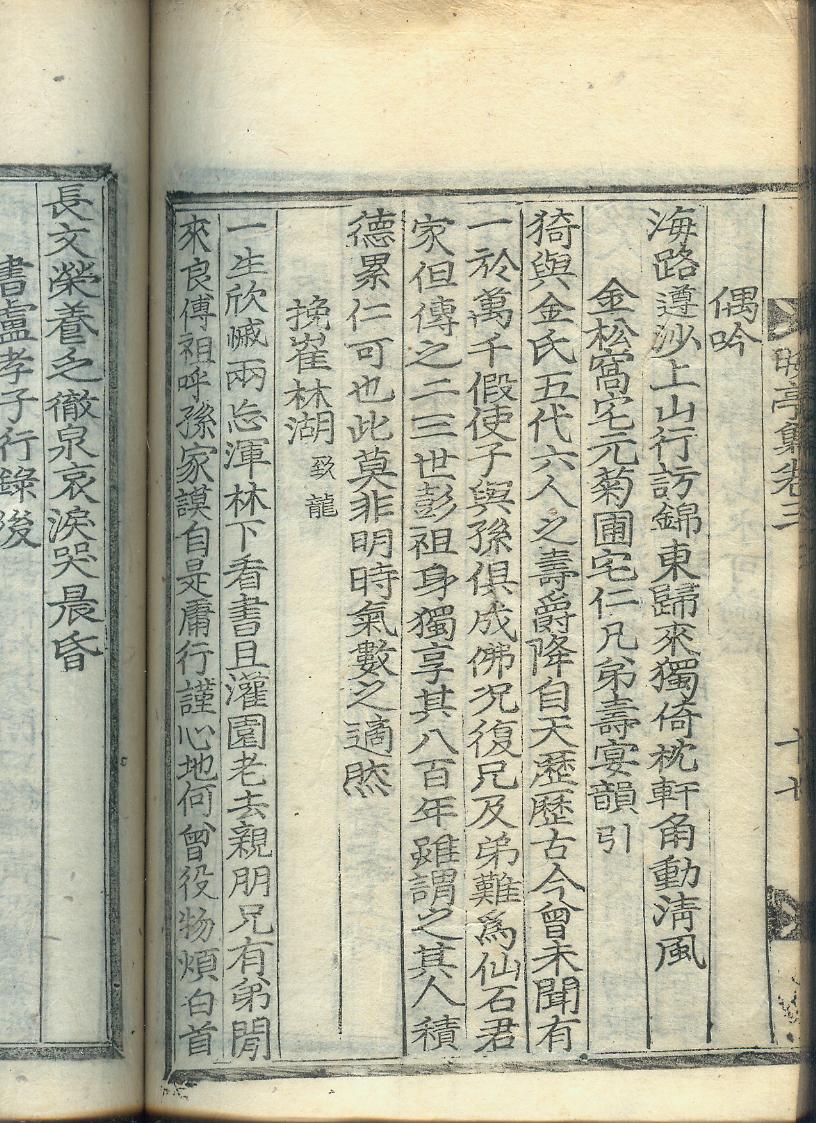 亭集卷二
十七
偶吟
海路遵沙上山行訪錦東歸來獨倚枕軒角動淸風
金松窩宅元菊圃宅仁凡弟壽宴韻引
猗與金氏五代六人之壽爵降自天歷歷古今曾未聞有
一於萬千假使子與孫俱成佛況復兄及弟難爲仙石君
家但傳之二三世彭祖身獨享其八百年雖謂之其人積
德累仁可也此莫非明時氣數之適然
挽崔林湖致龍
一生欣慽兩忘渾林下看書且灌園老去親朋兄有弟閒
來良傅祖呼孫家謨自是庸行謹心地何曾役物煩白首
長文榮養乏徹泉哀淚哭晨昏
書盧孝子行錄後